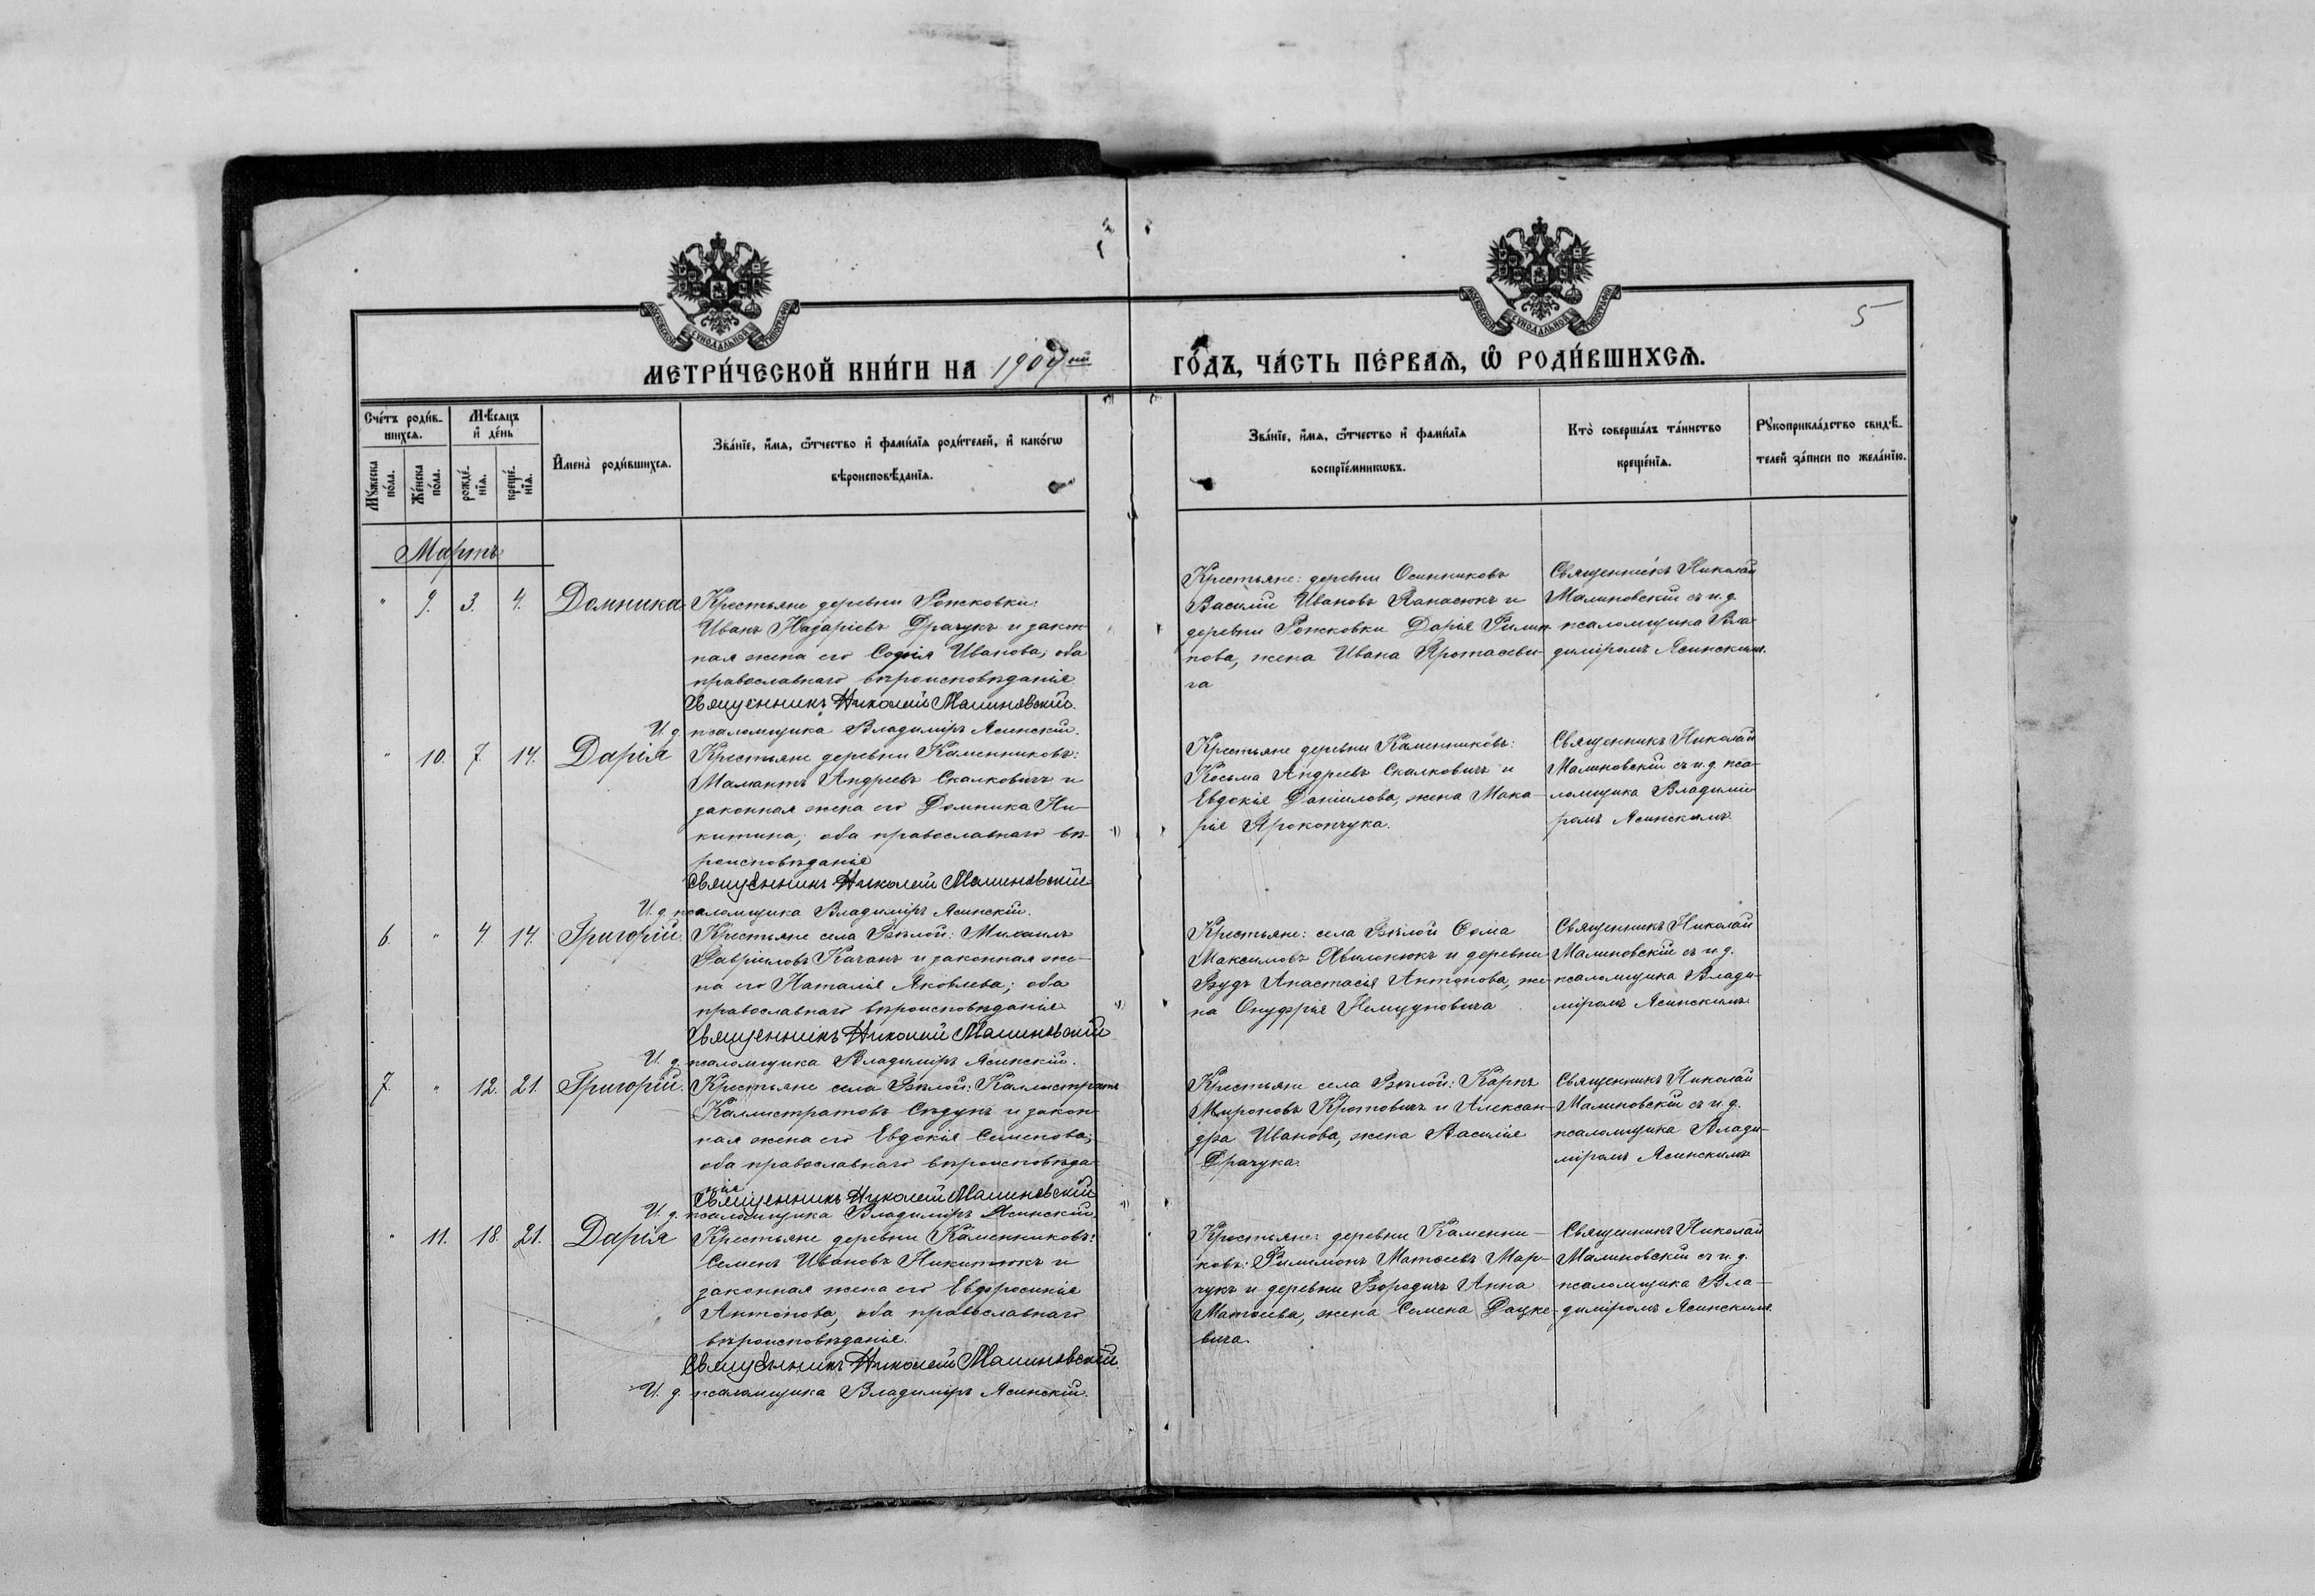 МОСКОВСКОЙ СѴНОДАЛЬНОЙ ТИПОГРАФІИ
МОСКОВСКОЙ СѴНОДАЛЬНОЙ ТИПОГРАФІИ
5
МЕТРИ́ЧЕСКОЙ КНИ́ГИ НА 1909ый ГО́ДЪ, ЧА́СТЬ ПЕ́РВАѦ, Ѡ҆ РОДИ́ВШИХСѦ.
Сче́тъ роди́в-
шихсѧ.
Мѣ́сѧцъ
и҆ де́нь
Мꙋ́жеска
по́ла.
Же́нска
по́ла.
рожде́-
нїѧ.
креще́-
нїѧ.
И҆мена̀ роди́вшихсѧ.
Зва́нїе, и҆́мѧ, ѻ҆́тчество и҆ фами́лїѧ роди́телей, и҆ како́гѡ
вѣроисповѣ́данїѧ.
Зва́нїе, и҆́мѧ, ѻ҆́тчество и҆ фами́лїѧ
воспрїе́мникѡвъ.
Кто̀ соверша́лъ та́инство
креще́нїѧ.
Рꙋкоприкла́дство свидѣ́-
телей за́писи по жела́нїю.
Мартъ
" 9. 3. 4. Домника
Крестьяне деревни Рожковки:
Иванъ Назаріевъ Драчукъ и закон-
ная жена его Софія Иванова, оба
православнаго вѣроисповѣданія.
Священникъ Николай Малиновскій.
И. д. псаломщика Владиміръ Ясинскій.
Крестьяне: деревни Осинниковъ
Василій Ивановъ Панасюкъ и
деревни Рожковки Дарія Филип-
пова, жена Ивана Протасеви-
ча
Священникъ Николай
Малиновскій съ и. д.
псаломщика Вла-
диміромъ Ясинскимъ.
" 10. 7 14. Дарія
Крестьяне деревни Каменниковъ:
Мамантъ Андреевъ Скалковичъ и
законная жена его Домника Ни-
китина; оба православнаго вѣ-
роисповѣданія
Священникъ Николай Малиновскій
И. д. псаломщика Владиміръ Ясинскій.
Крестьяне деревни Каменниковъ:
Косьма Андреевъ Скалковичъ и
Евдокія Даніилова, жена Мака-
рія Прокопчука.
Священникъ Николай
Малиновскій съ и. д. пса-
ломщика Владимі-
ромъ Ясинскимъ.
6. " 4 14. Григорій.
Крестьяне села Бѣлой: Михаилъ
Гавріиловъ Качанъ и законная же-
на его Наталія Яковлева; оба
православнаго вѣроисповѣданія
Священникъ Николай Малиновскій
И. д. псаломщика Владиміръ Ясинскій.
Крестьяне: села Бѣлой Ѳома
Максимовъ Хвилонюкъ и деревни
Будъ Анастасія Антонова, же-
на Онуфрія
Священникъ Николай
Малиновскій съ и. д.
псаломщика Влади-
міромъ Ясинскимъ
7. " 12. 21. Григорій.
Крестьяне села Бѣлой: Каллистратъ
Каллистратовъ Сѣдунъ и закон-
ная жена его Евдокія Семенова;
оба православнаго вѣроисповѣда-
нія
Священникъ Николай Малиновскій
И. д. псаломщика Владиміръ Ясинскій.
Крестьяне села Бѣлой: Карпъ
Мироновъ Кротовичъ и Алексан-
дра Иванова, жена Василія
Драчука.
Священникъ Николай
Малиновскій съ и. д.
псаломщика Влади-
міромъ Ясинскимъ
" 11. 18. 21. Дарія
Крестьяне деревни Каменниковъ:
Семенъ Ивановъ Никитюкъ и
законная жена его Евфросинія
Антонова, оба православнаго
вѣроисповѣданія.
Священникъ Николай Малиновскій.
И. д. псаломщика Владиміръ Ясинскій.
Крестьяне: деревни Каменни-
ковъ: Филимонъ Матѳеевъ Мар-
чукъ и деревни Бородичъ Анна
Матѳеева, жена Семена Дацке-
вича.
Священникъ Николай
Малиновскій съ и. д.
псаломщика Вла-
диміромъ Ясинскимъ.